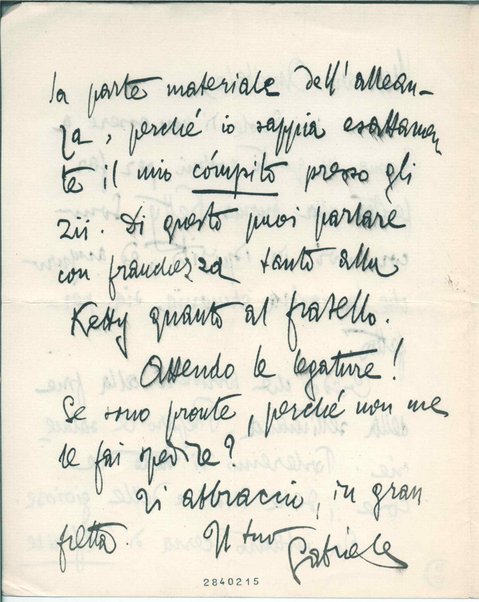 la parte materiale dell'allean-
za, perché io sappia esattamen
te il mio cómpito presso gli
zii. Di questo puoi parlare
con franchezza tanto alla
Ketty quanto al fratello.
Attendo le legature!
Se sono pronte, perché non me
le fai spedire?
Ti abbraccio, in gran
fretta Il tuo Gabriele
2840215